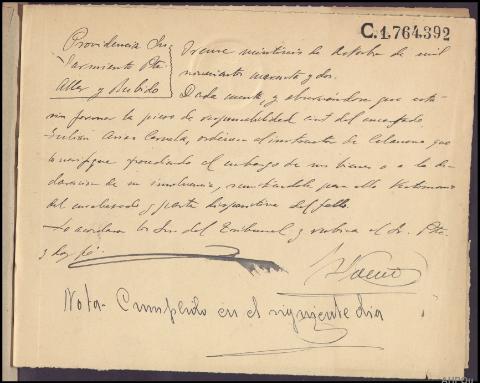 C.1.764.392
Providencia Srs
Sarmiento Pte
Aller y Bubido
Orense veintiseis de octubre de mil
novecientos cuarenta y dos.
Dada cuenta, y observándose que está
sin formar la pieza de responsabilidad civil del encartado
Julián Arias ordénese al instructor de Celanova que
la verifique procediendo al embargo de sus bienes o a la de-
claración de su insolvencia, remitiéndole para ello testimonio
del encabezado y parte dispositiva del fallo.
Lo acordaron los Srs. del Tribunal y rubrica el Sr. Pte.
y doy fe.
Nota- Cumplido en el siguiente dia